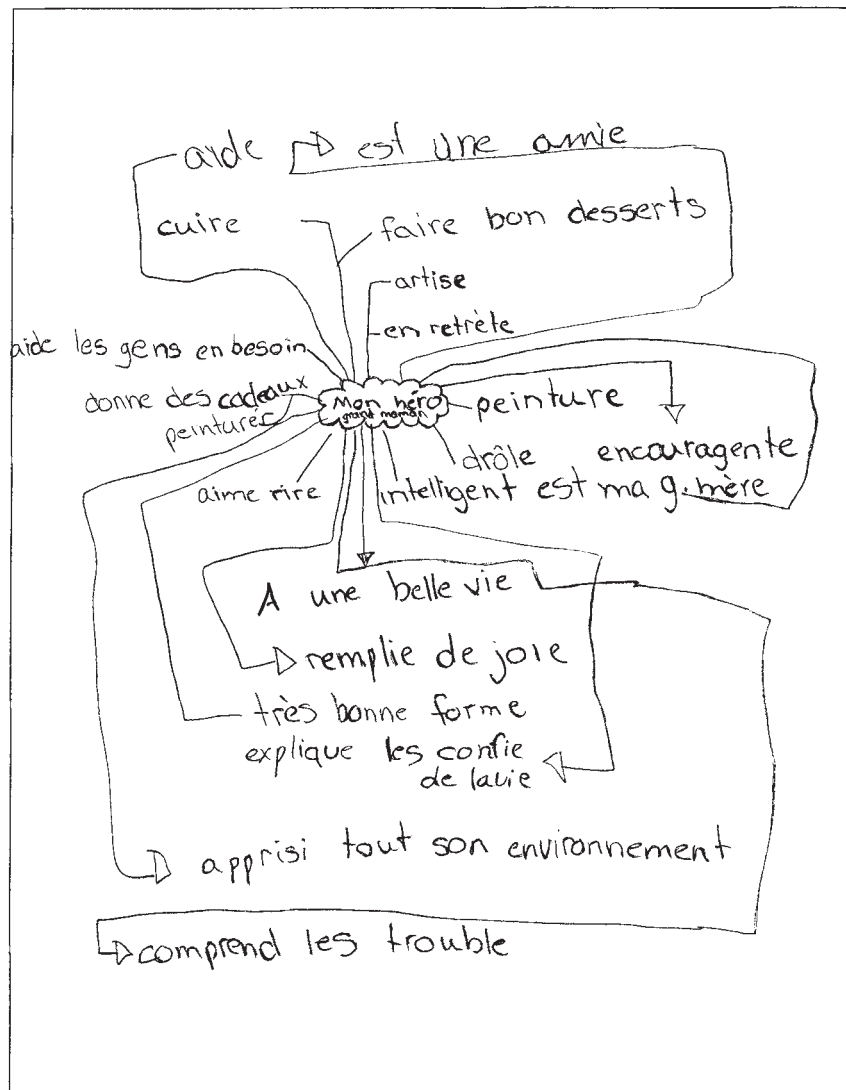 aide est une amie
cuire faire bon desserts
artise
en retrète
aide les gens en besoin
donne des cadeaux
peinturés
Mon héro
grand maman
peinture
drôle encouragente
aime rire intelligent est ma g. mère
A une belle vie
remplie de joie
très bonne forme
explique les confie
de lavie
apprisi tout son environnement
comprend les trouble